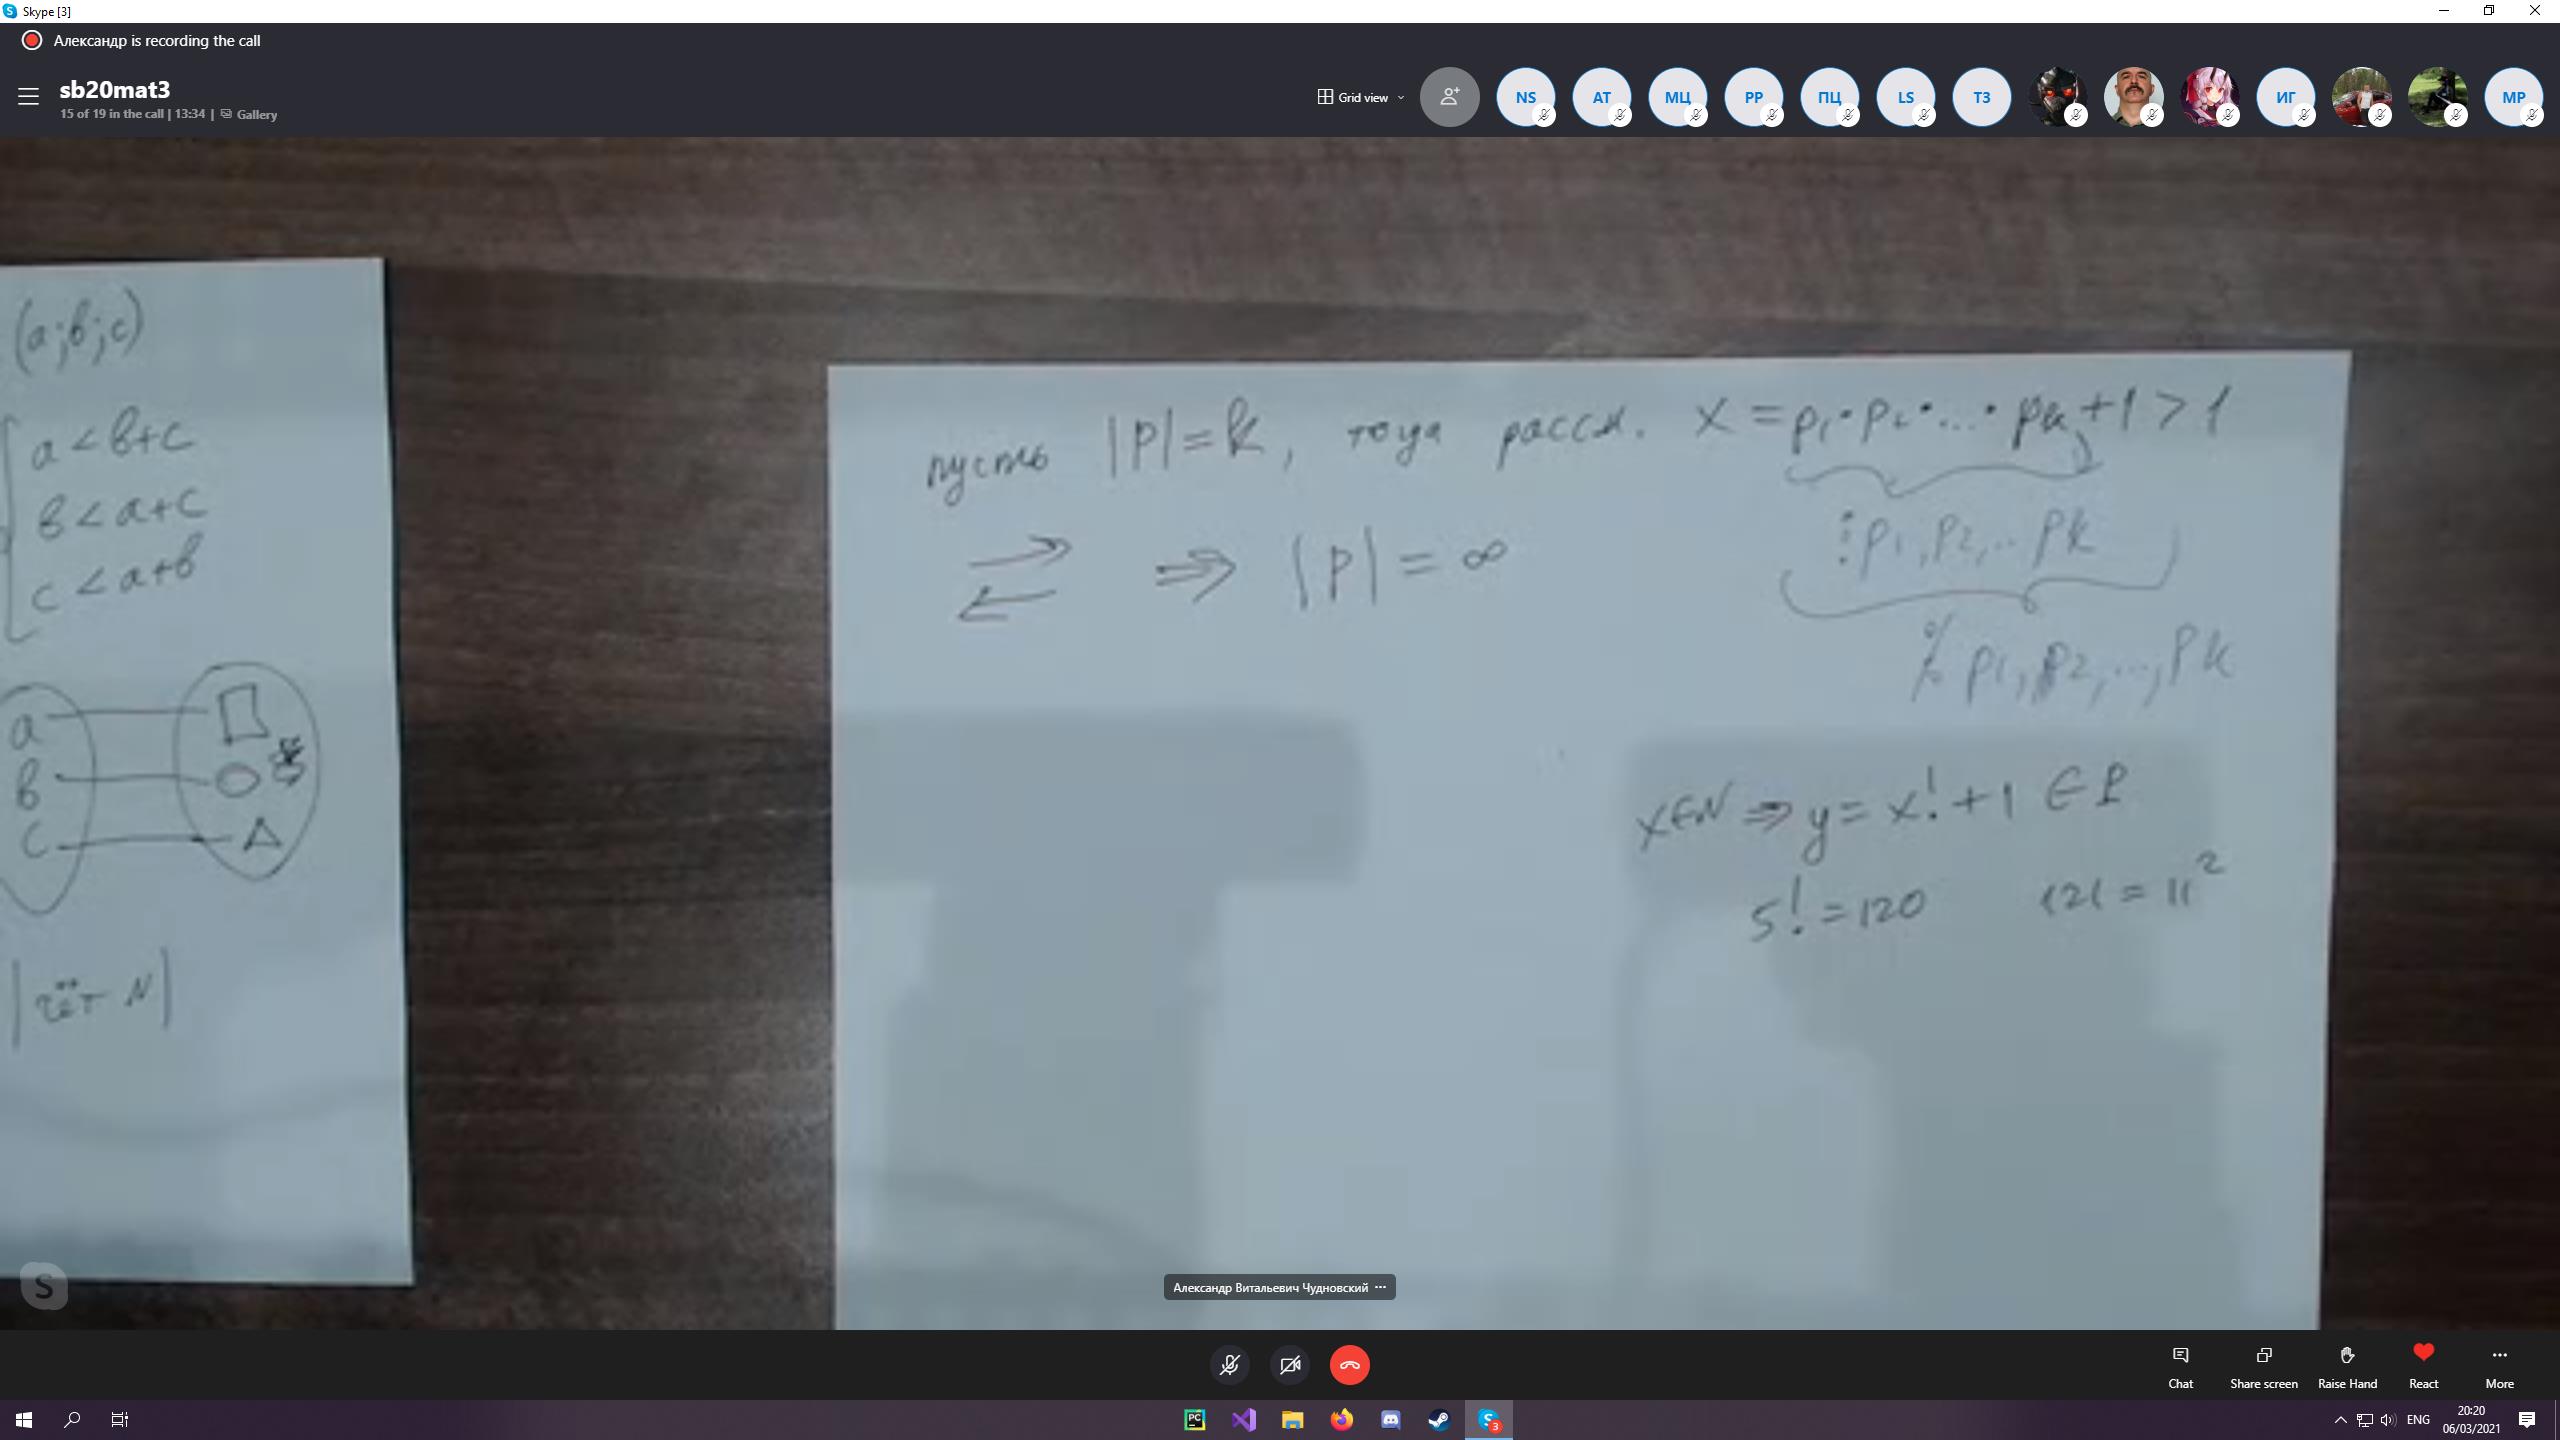 Skype [3]
Александр is recording the call
sb20mat3
15 of 19 in the call | 13:34 | Gallery
Grid view
NS
AT
МЦ
PP
ПЦ
LS
ТЗ
ИГ
MP
(a;b;c)
a < b+c
b < a+c
c < a+b
a
b
c
|чёт N|
пусть |P| = k, тогда рассм. x = p₁·p₂·...·pₖ+1 > 1
⋮ p₁, p₂,.. pₖ
⇒ |P| = ∞
p₁, p₂, ..., pₖ
x∈N ⇒ y = x! + 1 ∈ P
5! = 120 121 = 11²
Александр Витальевич Чудновский ···
S
Chat
Share screen
Raise Hand
React
More
PC
S 3
ENG
20:20
06/03/2021